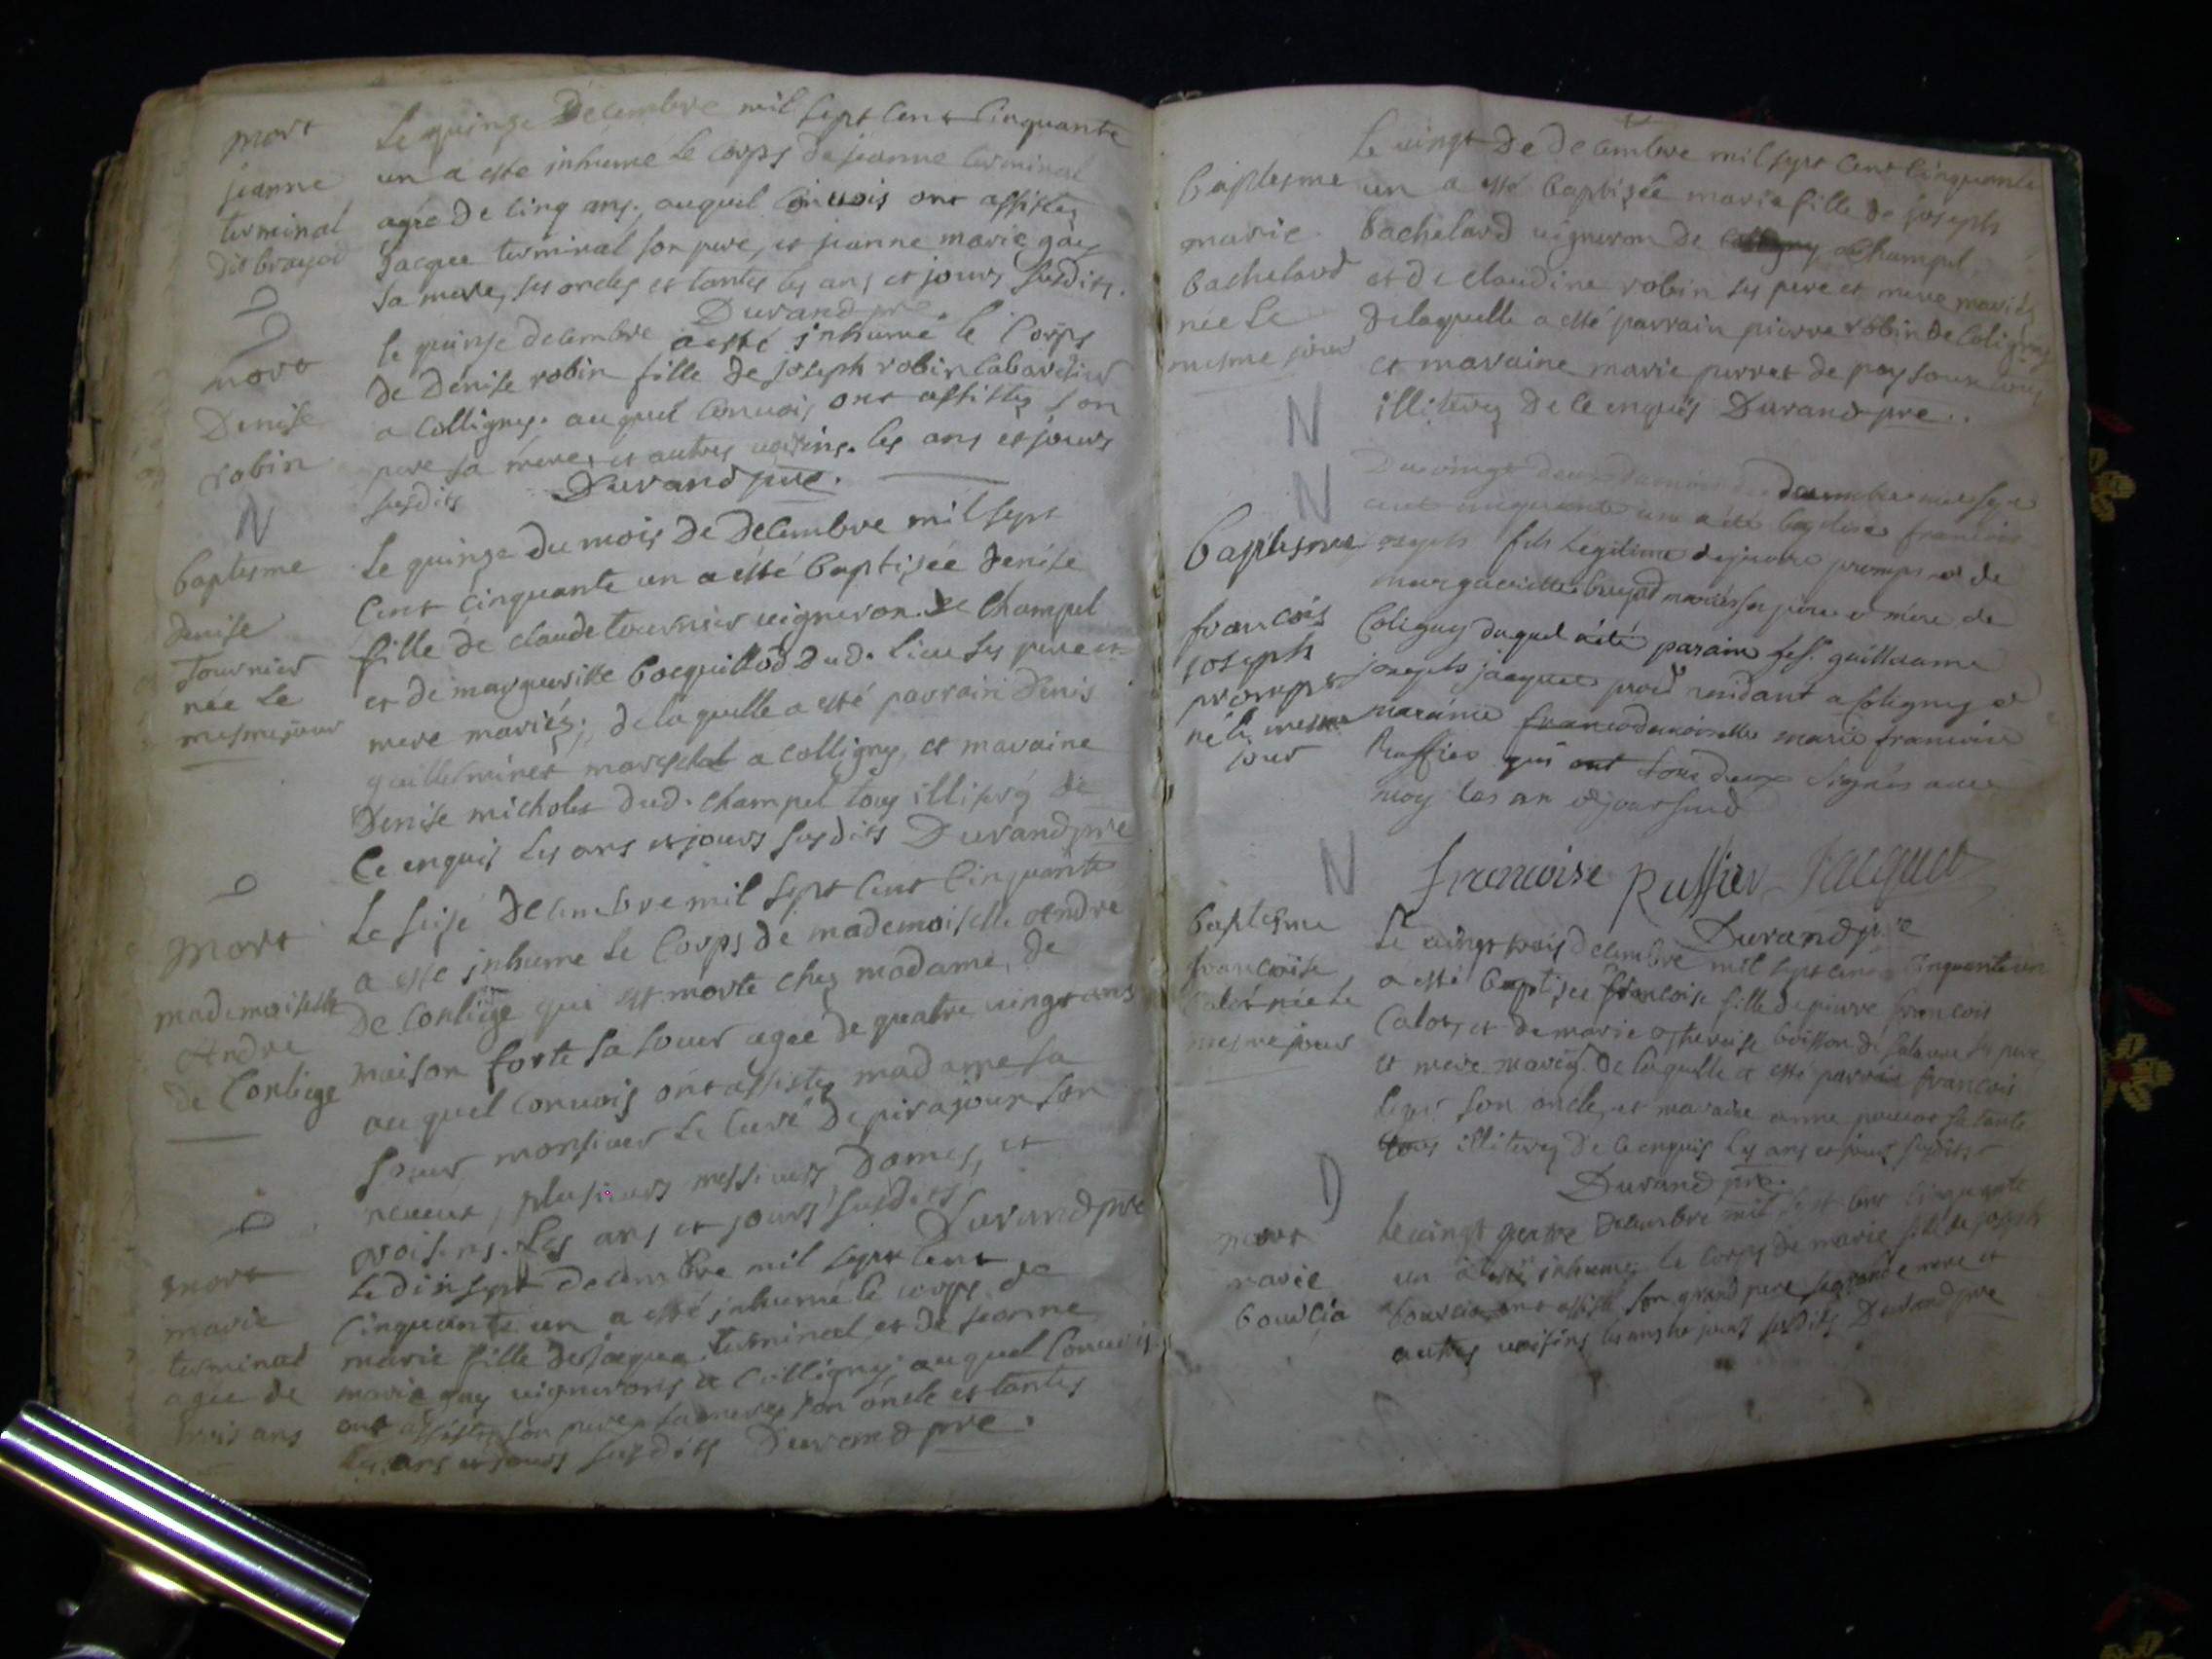 mort
jeanne
terminal
dit brayod
Le quinze Decembre mil sept cent cinquante
un a esté inhumé le corps de jeanne terminal
agée de cinq ans, auquel convois ont assistez
Jacque terminal son pere, et jeanne marie gay
sa mere, ses oncles et tantes les ans et jours susdits.
Durand pre
D
D
mort
Denise
robin
le quinse decembre a esté inhumé le Corps
de Denise robin fille de joseph robin Cabaretier
a Colligny. auquel Convois ont assistez son
pere sa mere, et autres voisins. les ans et jours
susdits Durand pre.
N
baptesme
denise
Tournier
née le
mesme jour
Le quinze du mois de Decembre mil sept
Cent cinquante un a esté baptisée denise
fille de claude tournier vigneron de Champel
et de margueritte bocquillod dud. Lieu ses pere et
mere mariés, de laquelle a esté parrain denis
guilleminet mareschal a colligny, et maraine
Denise micholet dud. Champel tous illiterés de
Ce enquis les ans et jours susdits Durand pre
D
mort
mademoiselle
Andre
de Conliege
Le seise Decembre mil sept cent cinquante
a esté inhume le Corps de mademoiselle Andre
De Conliege qui est morte chez madame, de
maison forte sa soeur agée de quatre vingt ans
au quel convois ont assistez madame sa
soeur monsieur le curé de pirajoux son
neveux, plusieurs messieurs, Dames, et
voisins. Les ans et jours susdits Durand pre
D
mort
marie
terminal
agée de
trois ans
Le dix sept decembre mil sept cent
Cinquante un a esté inhumé le corps de
marie fille de jacque terminal et de jeanne
marie gay vignerons a Colligny, auquel Convois
ont assistez son pere, sa mere, son oncle et tantes
les ans et jours susdits Durand pre.
baptesme
marie
bachelard
née le
mesme jour
Le vingt De decembre mil sept cent cinquante
un a esté baptisée marie fille de joseph
bachelard vigneron de Champel
et de claudine robin ses pere et mere mariés
De laquelle a esté parrain pierre robin de Coligny
et maraine marie perret de
illiterez de ce enquis Durand pre..
N
N
baptesme
francois
joseph
promps
né le mesme
jour
Du vingt deux du mois de decembre mil sept
cent cinquante un a été baptisé francois
joseph fils legitime de pierre promps et de
margueritte brayod mariés ses pere et mere de
Coligny duquel a été parain guillaume
joseph jacquet residant a Coligny et
maraine demoiselle marie francoise
Ruffier qui ont tous deux signés avec
moy les an et jour susd
francoise Ruffier Jacquet
Durand pre
N
baptesme
francoise
Calot née le
mesme jour
Le vingt trois decembre mil sept cent cinquante un
a esté baptisée francoise fille de pierre francois
Calot, et de marie boisson de ses pere
et mere mariés. De laquelle a esté parrain francois
son oncle, et maraine anne sa tante
tous illiterez de ce enquis les ans et jours susdits
Durand pre.
D
mort
marie
bourcia
Le vingt quatre Decembre mil sept cent cinquante
un a esté inhumé le corps de marie fille de joseph
bourcia, ont assisté son grand pere sa grande mere et
autres voisins les ans et jours susdits Durand pre